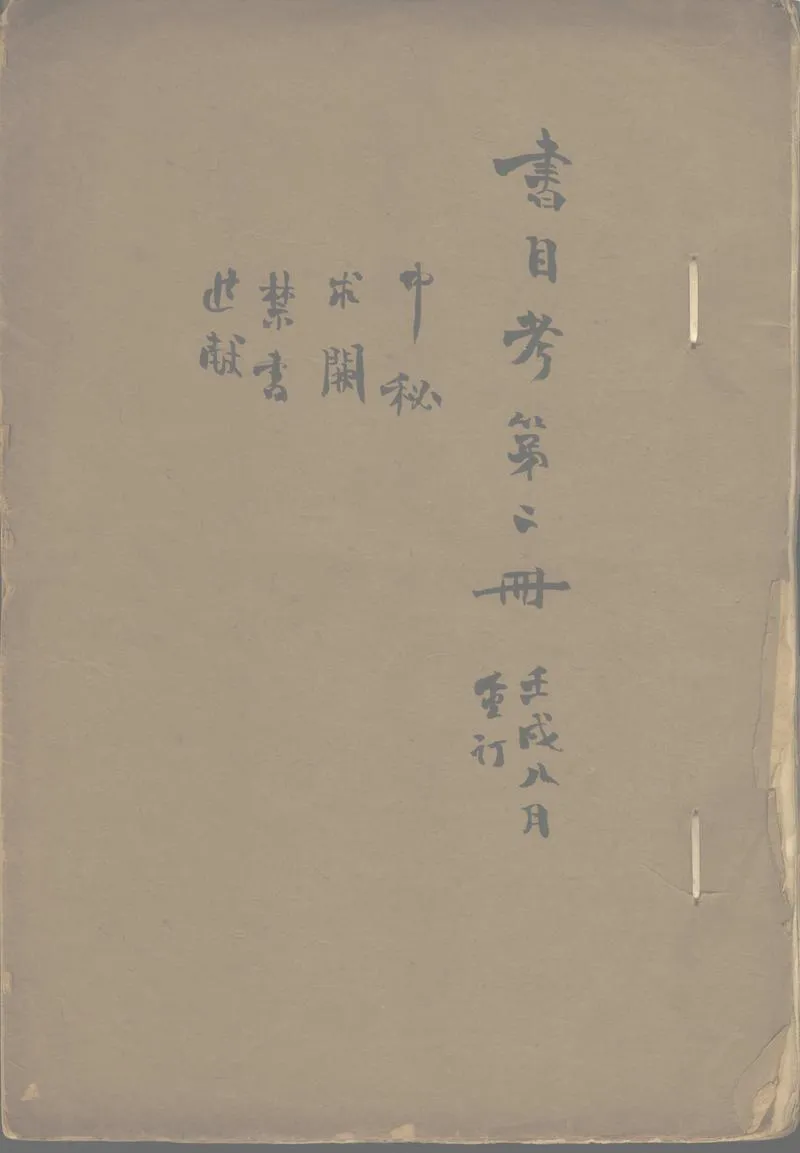 書目考第二冊
壬戌八月
重訂
中秘
求闕
禁書
進献